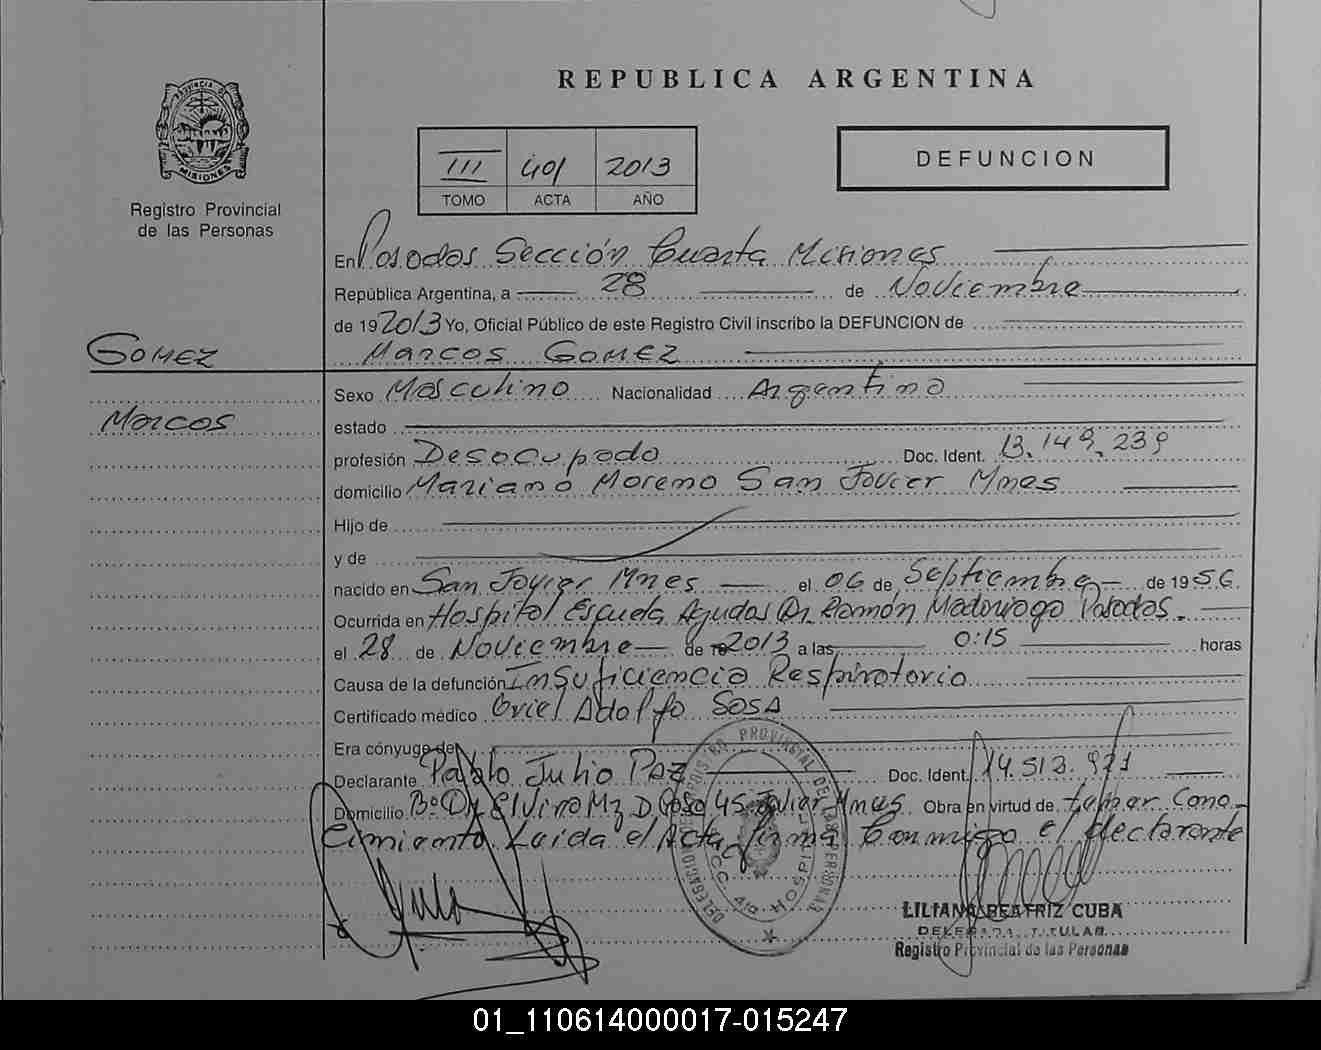 REPUBLICA ARGENTINA
PROVINCIA DE MISIONES
Registro Provincial
de las Personas
III 401 2013
TOMO ACTA AÑO
DEFUNCION
En Posadas Sección Cuarta Misiones
República Argentina, a 28 de Noviembre
de 19 2013 Yo, Oficial Público de este Registro Civil inscribo la DEFUNCION de
GOMEZ
Marcos GOMEZ
Marcos
Sexo Masculino Nacionalidad Argentino
estado
profesión Desocupado Doc. Ident. 13.149.239
domicilio Mariano Moreno San Javier Mnes
Hijo de
y de
nacido en San Javier Mnes el 06 de Septiembre de 1956.
Ocurrida en Hospital Escuela Agudos Dr. Ramón Madariaga Posadas.
el 28 de Noviembre de 2013 a las 0:15 horas
Causa de la defunción Insuficiencia Respiratoria
Certificado médico Oriel Adolfo SOSA
Era cónyuge de
Declarante Pablo Julio Paz Doc. Ident. 14.513.971
Domicilio Bº Dr Elvira Mz D Casa 45 Javier Mnes Obra en virtud de tomar Cono-
cimiento Leida el Acta firma Conmigo el declarante
LILIANA BEATRIZ CUBA
DELEGADA TITULAR
Registro Provincial de las Personas
01_110614000017-015247